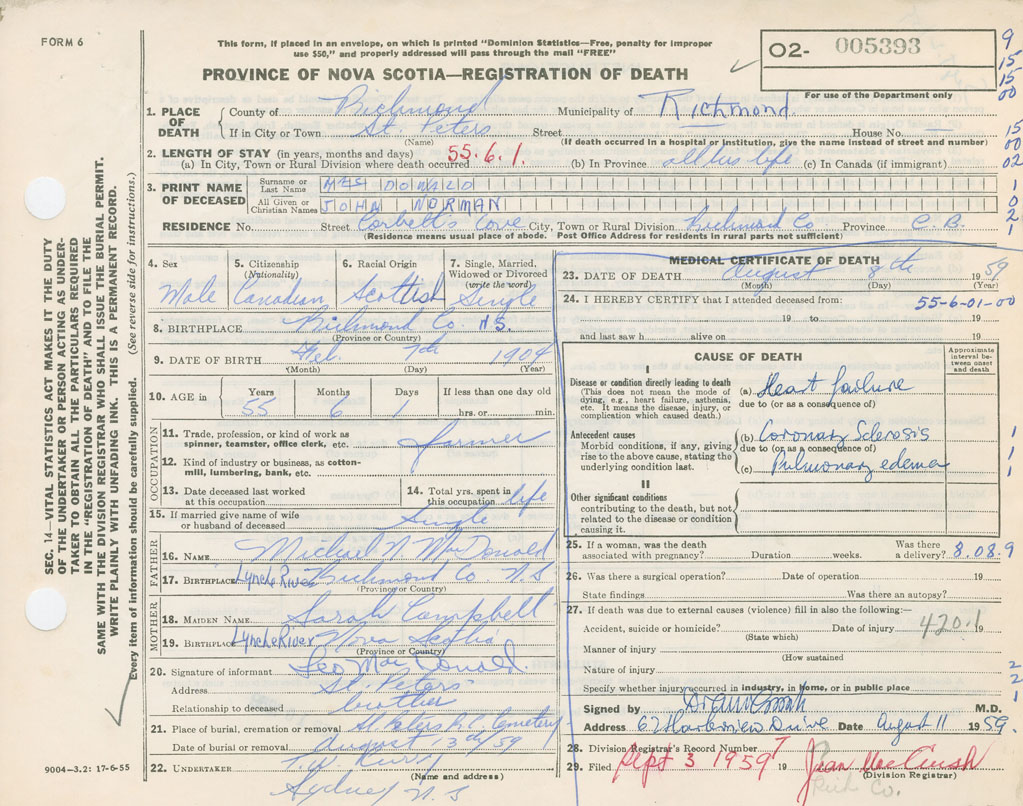 FORM 6
This form, if placed in an envelope, on which is printed "Dominion Statistics—Free, penalty for improper
use $50," and properly addressed will pass through the mail "FREE"
O2- 005393
For use of the Department only
9
15
15
00
15
00
02
1
0
2
1
PROVINCE OF NOVA SCOTIA—REGISTRATION OF DEATH
SEC. 14—VITAL STATISTICS ACT MAKES IT THE DUTY
OF THE UNDERTAKER OR PERSON ACTING AS UNDER-
TAKER TO OBTAIN ALL THE PARTICULARS REQUIRED
IN THE "REGISTRATION OF DEATH" AND TO FILE THE
SAME WITH THE DIVISION REGISTRAR WHO SHALL ISSUE THE BURIAL PERMIT.
WRITE PLAINLY WITH UNFADING INK. THIS IS A PERMANENT RECORD.
Every item of information should be carefully supplied. (See reverse side for instructions.)
1. PLACE OF DEATH
County of Richmond Municipality of Richmond
If in City or Town St. Peters Street House No. —
(Name) (If death occurred in a hospital or institution, give the name instead of street and number)
2. LENGTH OF STAY (in years, months and days)
(a) In City, Town or Rural Division where death occurred 55.6.1. (b) In Province all his life (c) In Canada (if immigrant)
3. PRINT NAME OF DECEASED
Surname or Last Name MAC DONALD
All Given or Christian Names JOHN NORMAN
RESIDENCE No. Street Corbett's Cove City, Town or Rural Division Richmond Co Province C.B.
(Residence means usual place of abode. Post Office Address for residents in rural parts not sufficient)
4. Sex 5. Citizenship (Nationality) 6. Racial Origin 7. Single, Married, Widowed or Divorced (write the word)
Male Canadian Scottish Single
8. BIRTHPLACE Richmond Co. N.S.
(Province or Country)
9. DATE OF BIRTH Feb. 7th 1904
(Month) (Day) (Year)
10. AGE in Years Months Days If less than one day old
55 6 1 hrs. or min.
OCCUPATION
11. Trade, profession, or kind of work as
spinner, teamster, office clerk, etc. farmer
12. Kind of industry or business, as cotton-
mill, lumbering, bank, etc.
13. Date deceased last worked
at this occupation
14. Total yrs. spent in
this occupation life
15. If married give name of wife
or husband of deceased Single
FATHER
16. NAME Michael N MacDonald
17. BIRTHPLACE Lynche River Richmond Co. N.S
(Province or Country)
MOTHER
18. MAIDEN NAME Sarah Campbell
19. BIRTHPLACE Lynche River Nova Scotia
(Province or Country)
20. Signature of informant Leo MacDonald.
Address St. Peters
Relationship to deceased brother
21. Place of burial, cremation or removal St Peters R.C. Cemetery
Date of burial or removal August /59
22. UNDERTAKER T.W.
(Name and address)
Sydney N.S
9004—3.2: 17-6-55
MEDICAL CERTIFICATE OF DEATH
23. DATE OF DEATH August 8th 1959
(Month) (Day) (Year)
24. I HEREBY CERTIFY that I attended deceased from: 55-6-01-00
19 to 19
and last saw h alive on 19
CAUSE OF DEATH
Approximate interval be-tween onset and death
I
Disease or condition directly leading to death
(This does not mean the mode of
dying, e.g., heart failure, asthenia,
etc. It means the disease, injury, or
complication which caused death.)
(a) Heart failure
due to (or as a consequence of)
Antecedent causes
Morbid conditions, if any, giving
rise to the above cause, stating the
underlying condition last.
(b) Coronary Sclerosis
due to (or as a consequence of)
(c) Pulmonary edema
1
1
1
II
Other significant conditions
contributing to the death, but not
related to the disease or condition
causing it.
25. If a woman, was the death
associated with pregnancy? Duration weeks. Was there a delivery? 8.08.9
26. Was there a surgical operation? Date of operation 19
State findings Was there an autopsy?
27. If death was due to external causes (violence) fill in also the following:—
Accident, suicide or homicide? Date of injury 420.1 19
(State which)
Manner of injury
(How sustained
Nature of injury
Specify whether injury occurred in industry, in home, or in public place
2
2
1
Signed by M.D.
Address 67 Harborview Drive Date August 11 1959
28. Division Registrar's Record Number 7
29. Filed Sept 3 1959 19
(Division Registrar)
Rich Co.